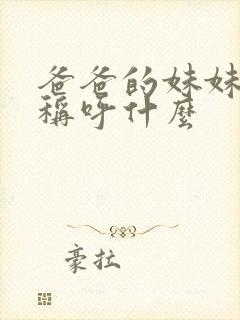 爸爸的妹妹
稱呼什麼
豪拉